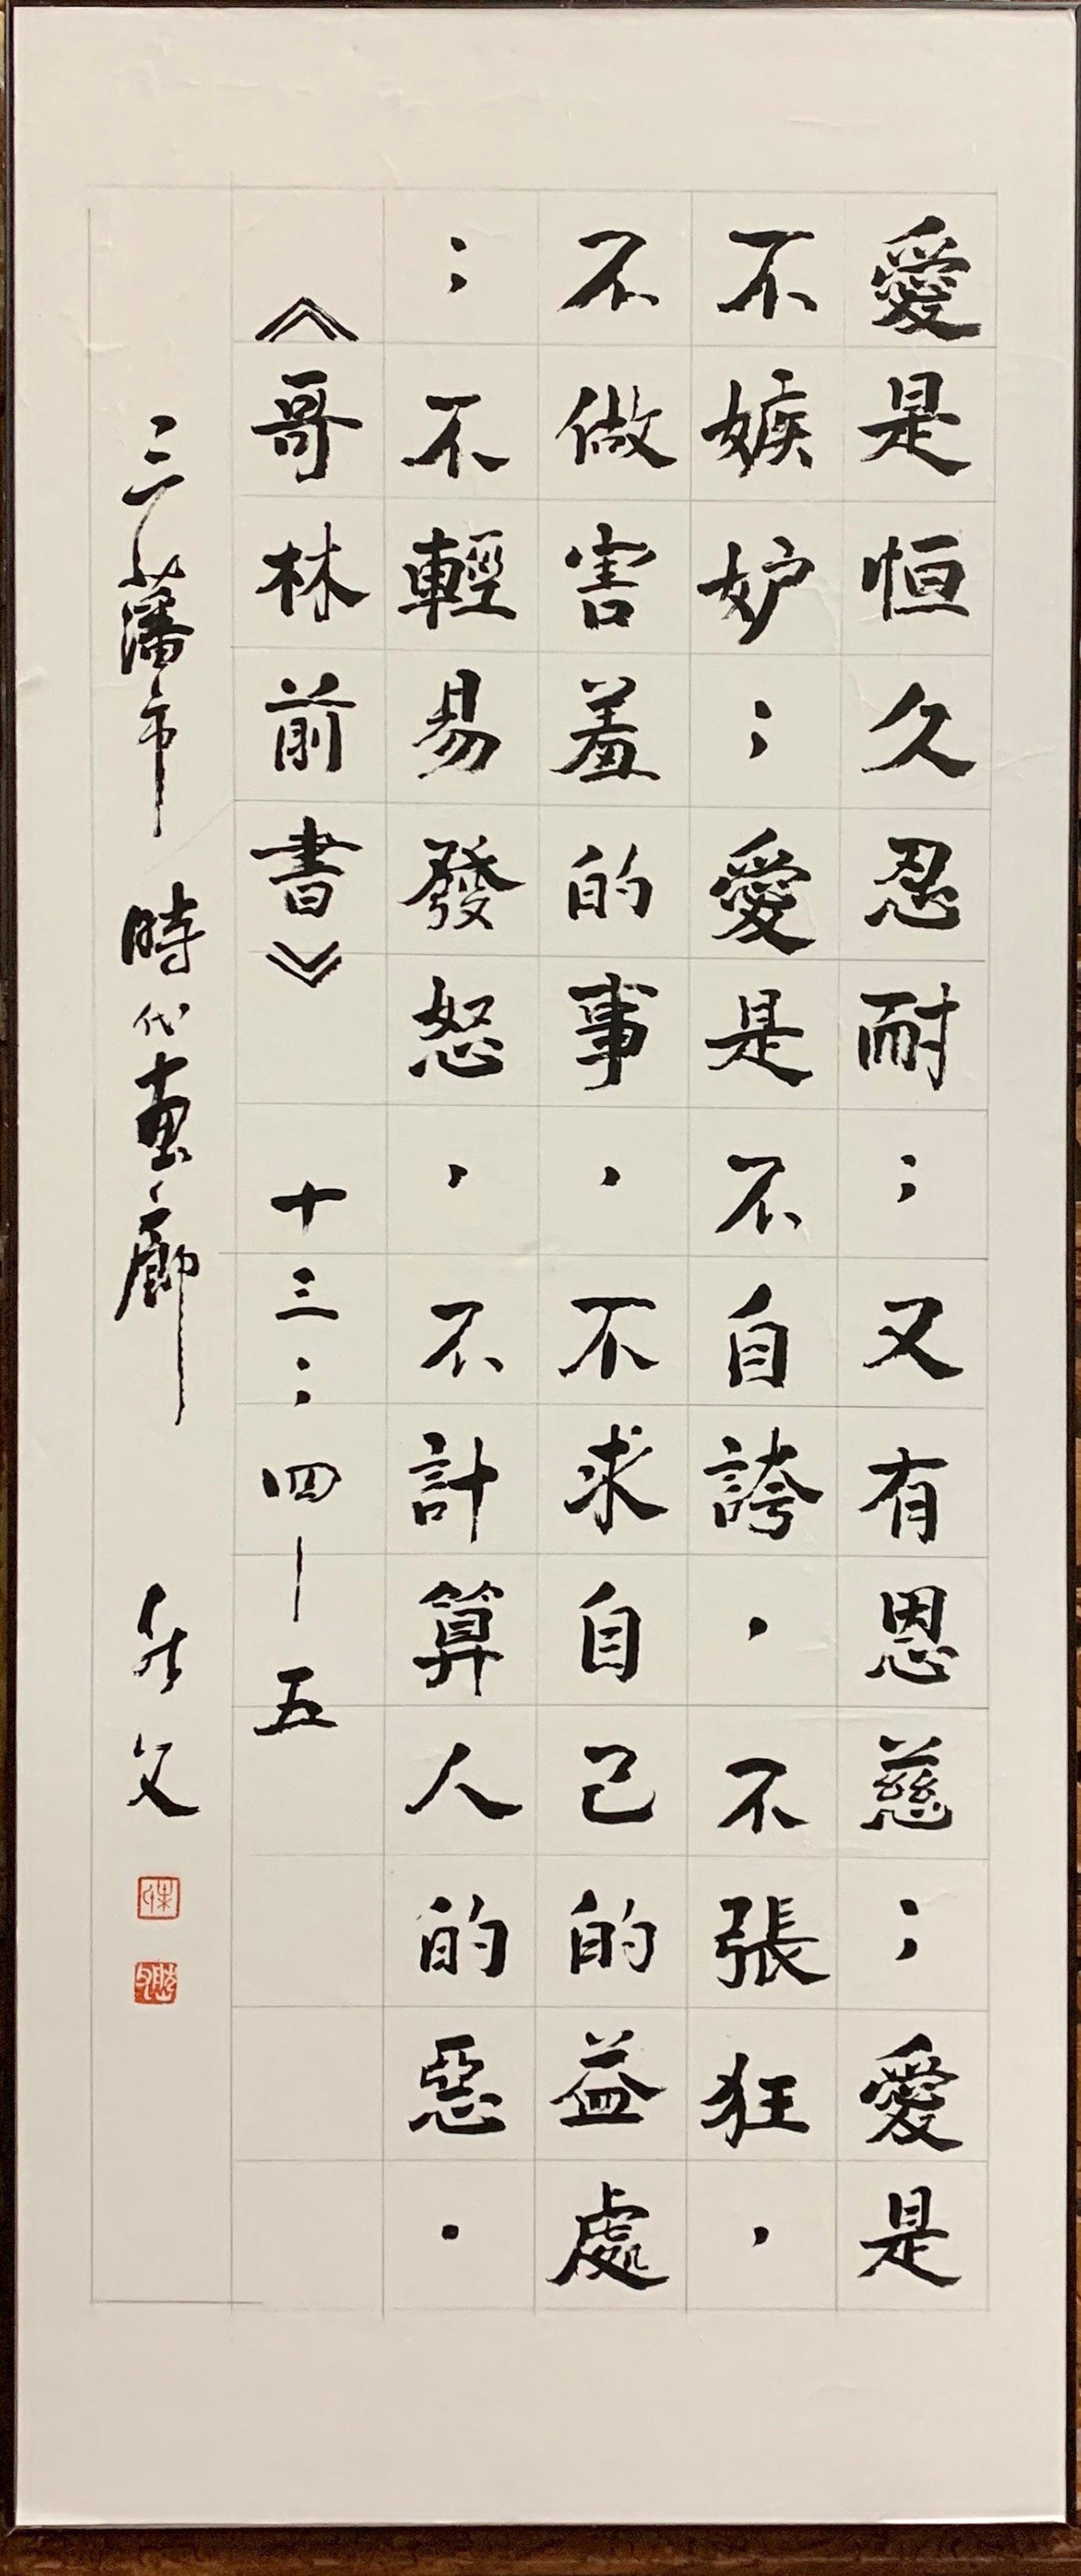 愛是恒久忍耐；又有恩慈；愛是
不嫉妒；愛是不自誇，不張狂，
不做害羞的事，不求自己的益處
；不輕易發怒，不計算人的惡．
《哥林前書》十三：四—五
三藩市 時代畫廊